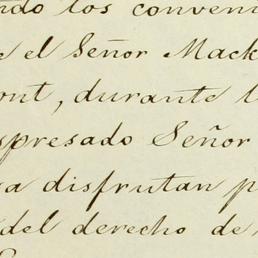 ndo los conveni
e el Señor Mack
ont, durante l
spresado Señor
a disfrutan p
del derecho de